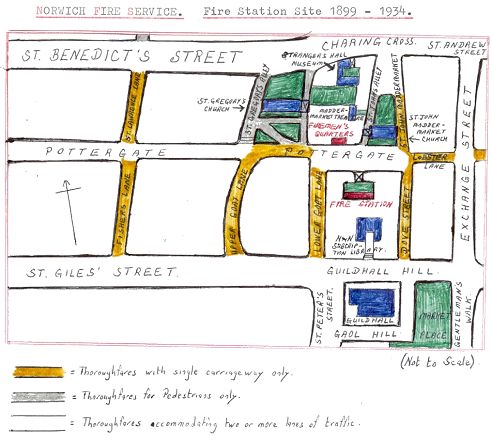 NORWICH FIRE SERVICE. Fire Station Site 1899 - 1934.
ST. BENEDICT'S STREET
CHARING CROSS.
ST. ANDREW
STREET
STRANGERS HALL
MUSEUM
ST. LAWRENCE LANE
ST. GREGORY'S ALLEY
ST. GREGORY'S
CHURCH
MADDER-
MARKET THEATRE
FIREMEN'S
QUARTERS
ST. JOHN'S ALLEY
ST. JOHN MADDERMARKET
ST. JOHN
MADDER-
MARKET
CHURCH
EXCHANGE STREET
POTTERGATE
POTTERGATE
LOBSTER
LANE
FISHERS LANE
UPPER GOAT LANE
LOWER GOAT LANE
FIRE STATION
DOVE STREET
N&N
SUBSCRIP-
TION LIBRARY.
ST. GILES' STREET.
GUILDHALL HILL.
ST. PETER'S
STREET.
GUILDHALL
GAOL HILL
MARKET
PLACE
GENTLEMAN'S
WALK
(Not to Scale).
= Thoroughfares with single carriageway only.
= Thoroughfares for Pedestrians only.
= Thoroughfares accommodating two or more lanes of traffic.